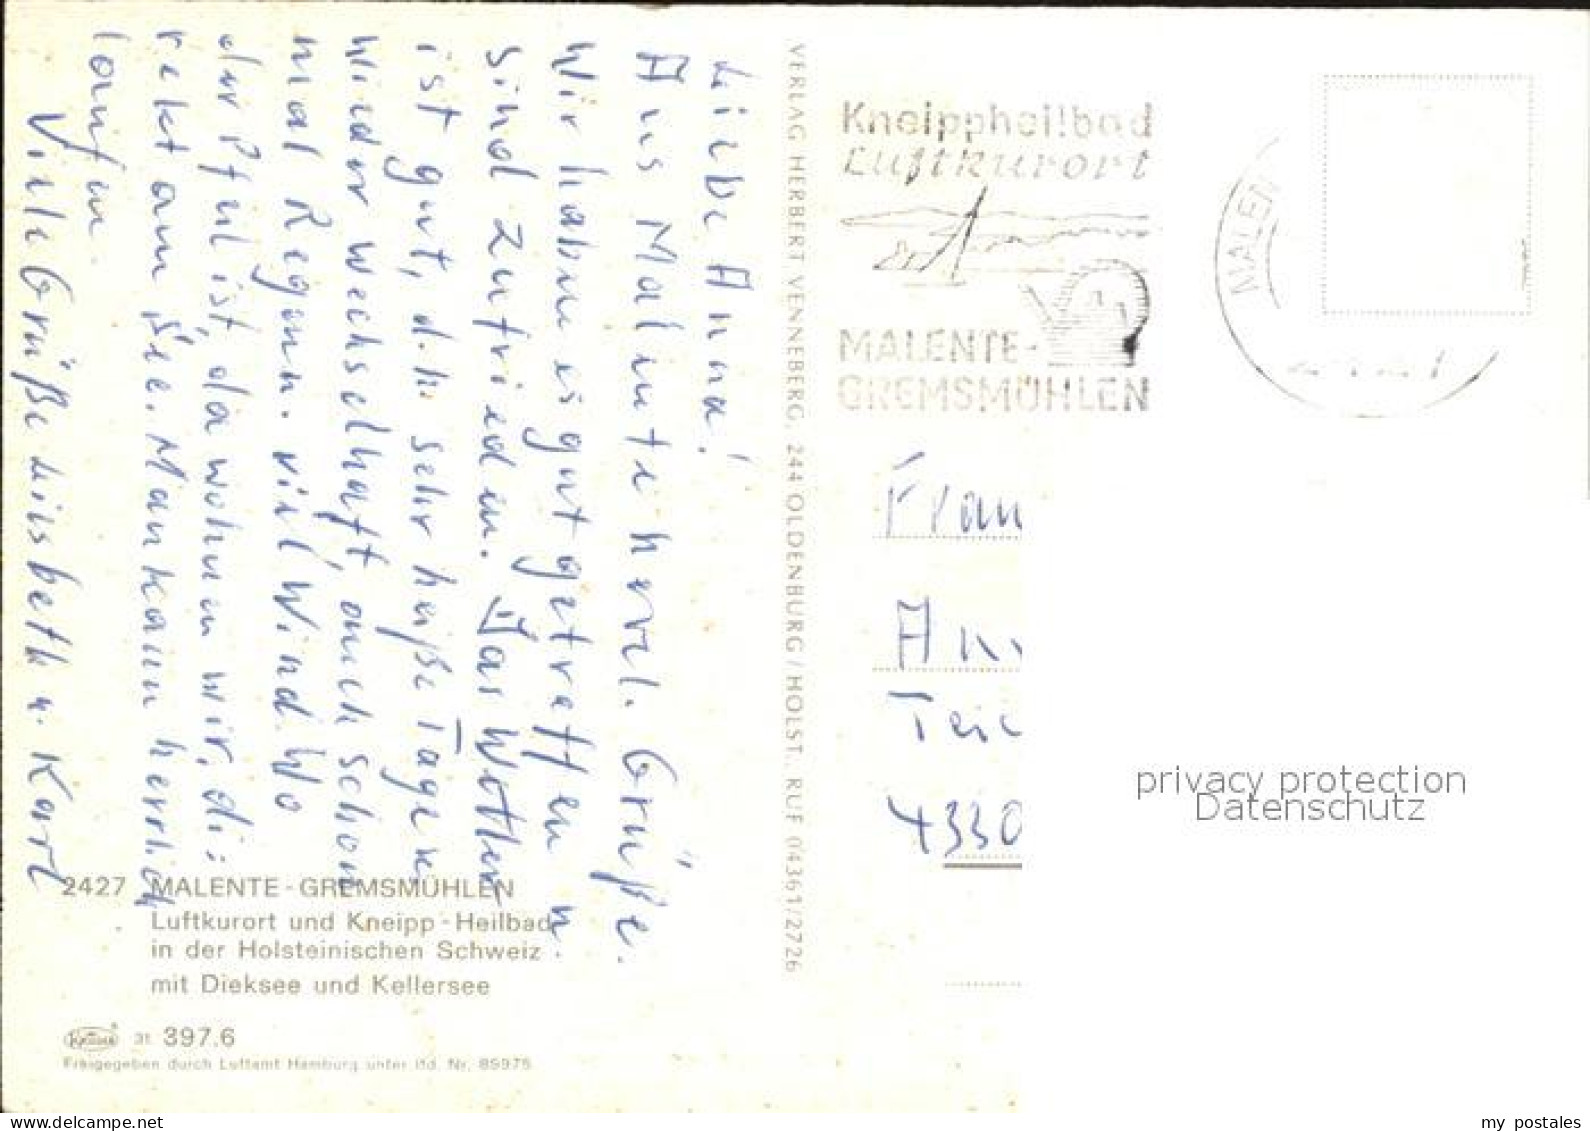 Liebe Anna!
Aus Malente herzl. Grüße.
Wir haben es gut getroffen u.
sind zufrieden. Das Wetter
ist gut, d.h. sehr heiße Tage u.
wieder wechselhaft, auch schon
mal Regen. viel Wind. Wo
der Pfeil ist, da wohnen wir, di-
rekt am See. Man kann herrlich
laufen.
Viele Grüße Liesbeth u. Karl
2427 MALENTE - GREMSMÜHLEN
Luftkurort und Kneipp - Heilbad
in der Holsteinischen Schweiz
mit Dieksee und Kellersee
397.6
Freigegeben durch Luftamt Hamburg unter lfd. Nr. 89975
VERLAG HERBERT VENNEBERG, 244 OLDENBURG / HOLST., RUF 04361/2726
Kneippheilbad
Luftkurort
MALENTE-
GREMSMÜHLEN
MALEN
Frau
Teic
4330
privacy protection
Datenschutz
www.delcampe.net
my_postales